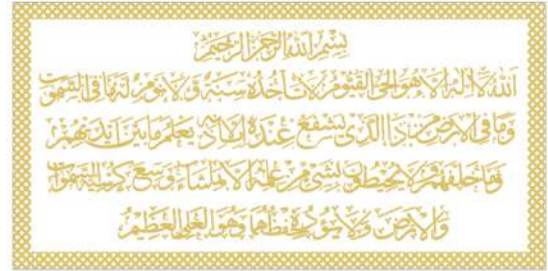 بسم الله الرحمن الرحيم
الله لا إله إلا هو الحي القيوم لا تأخذه سنة ولا نوم له ما في السموات
وما في الأرض من ذا الذي يشفع عنده إلا بإذنه يعلم ما بين أيديهم
وما خلفهم ولا يحيطون بشيء من علمه إلا بما شاء وسع كرسيه السموات
والأرض ولا يئوده حفظهما وهو العلي العظيم